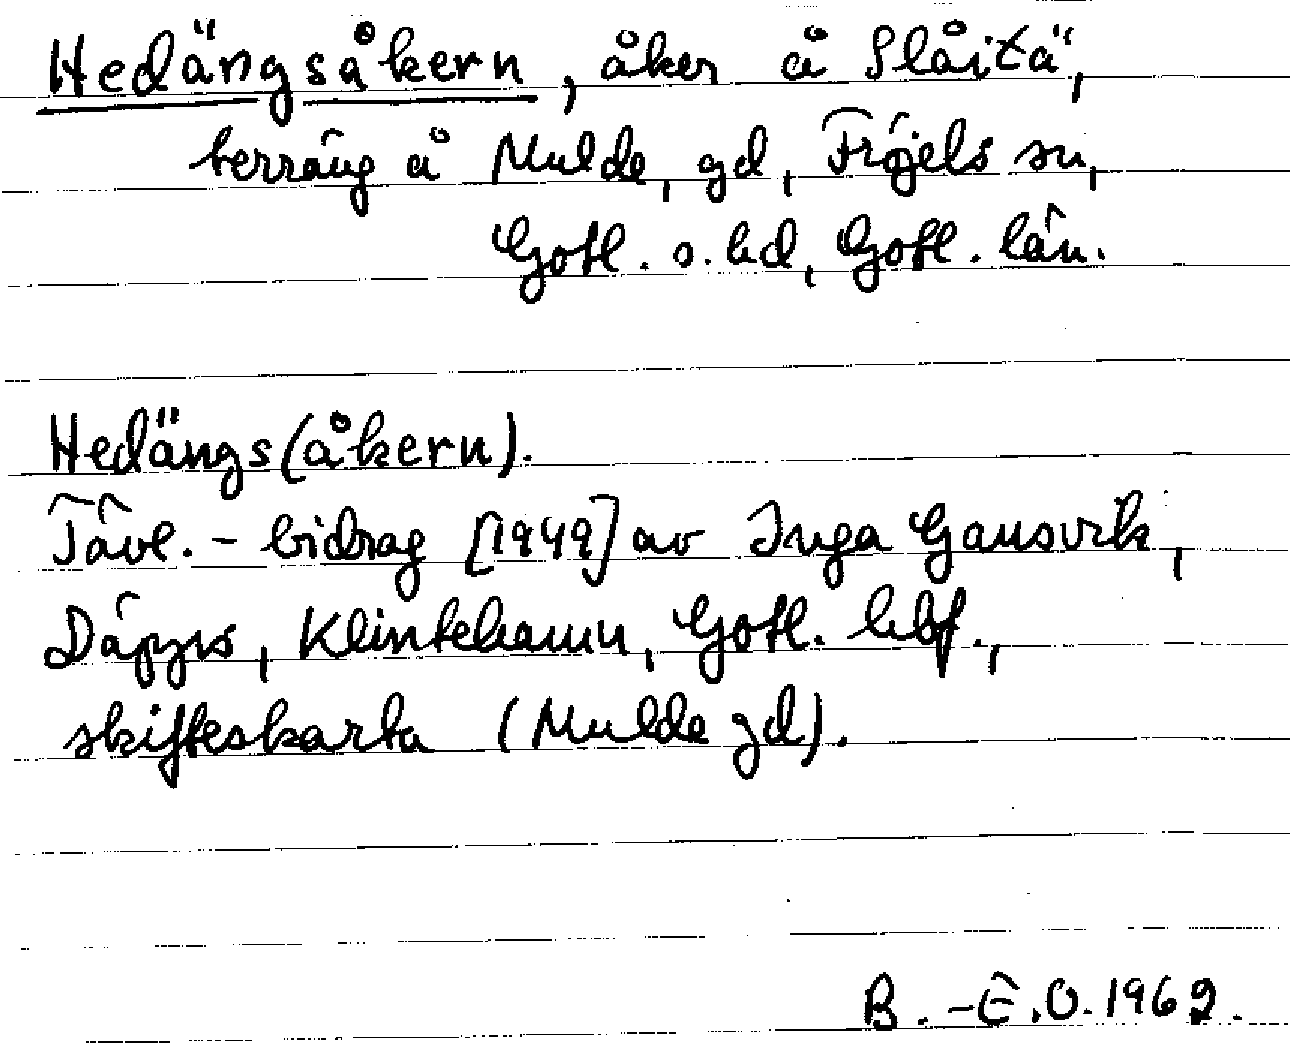 Hedängsåkern, åker å Slåitä,
terräng å Mulde, gd, Fröjels sn,
Gotl. s. hd, Gotl. län.
Hedängs(åkern).
Tävl. - bidrag [1949] av Inga
Klintehamn, Gotl. hbf.,
skifteskarta (Mulde gd).
B. -E. O. 1962.